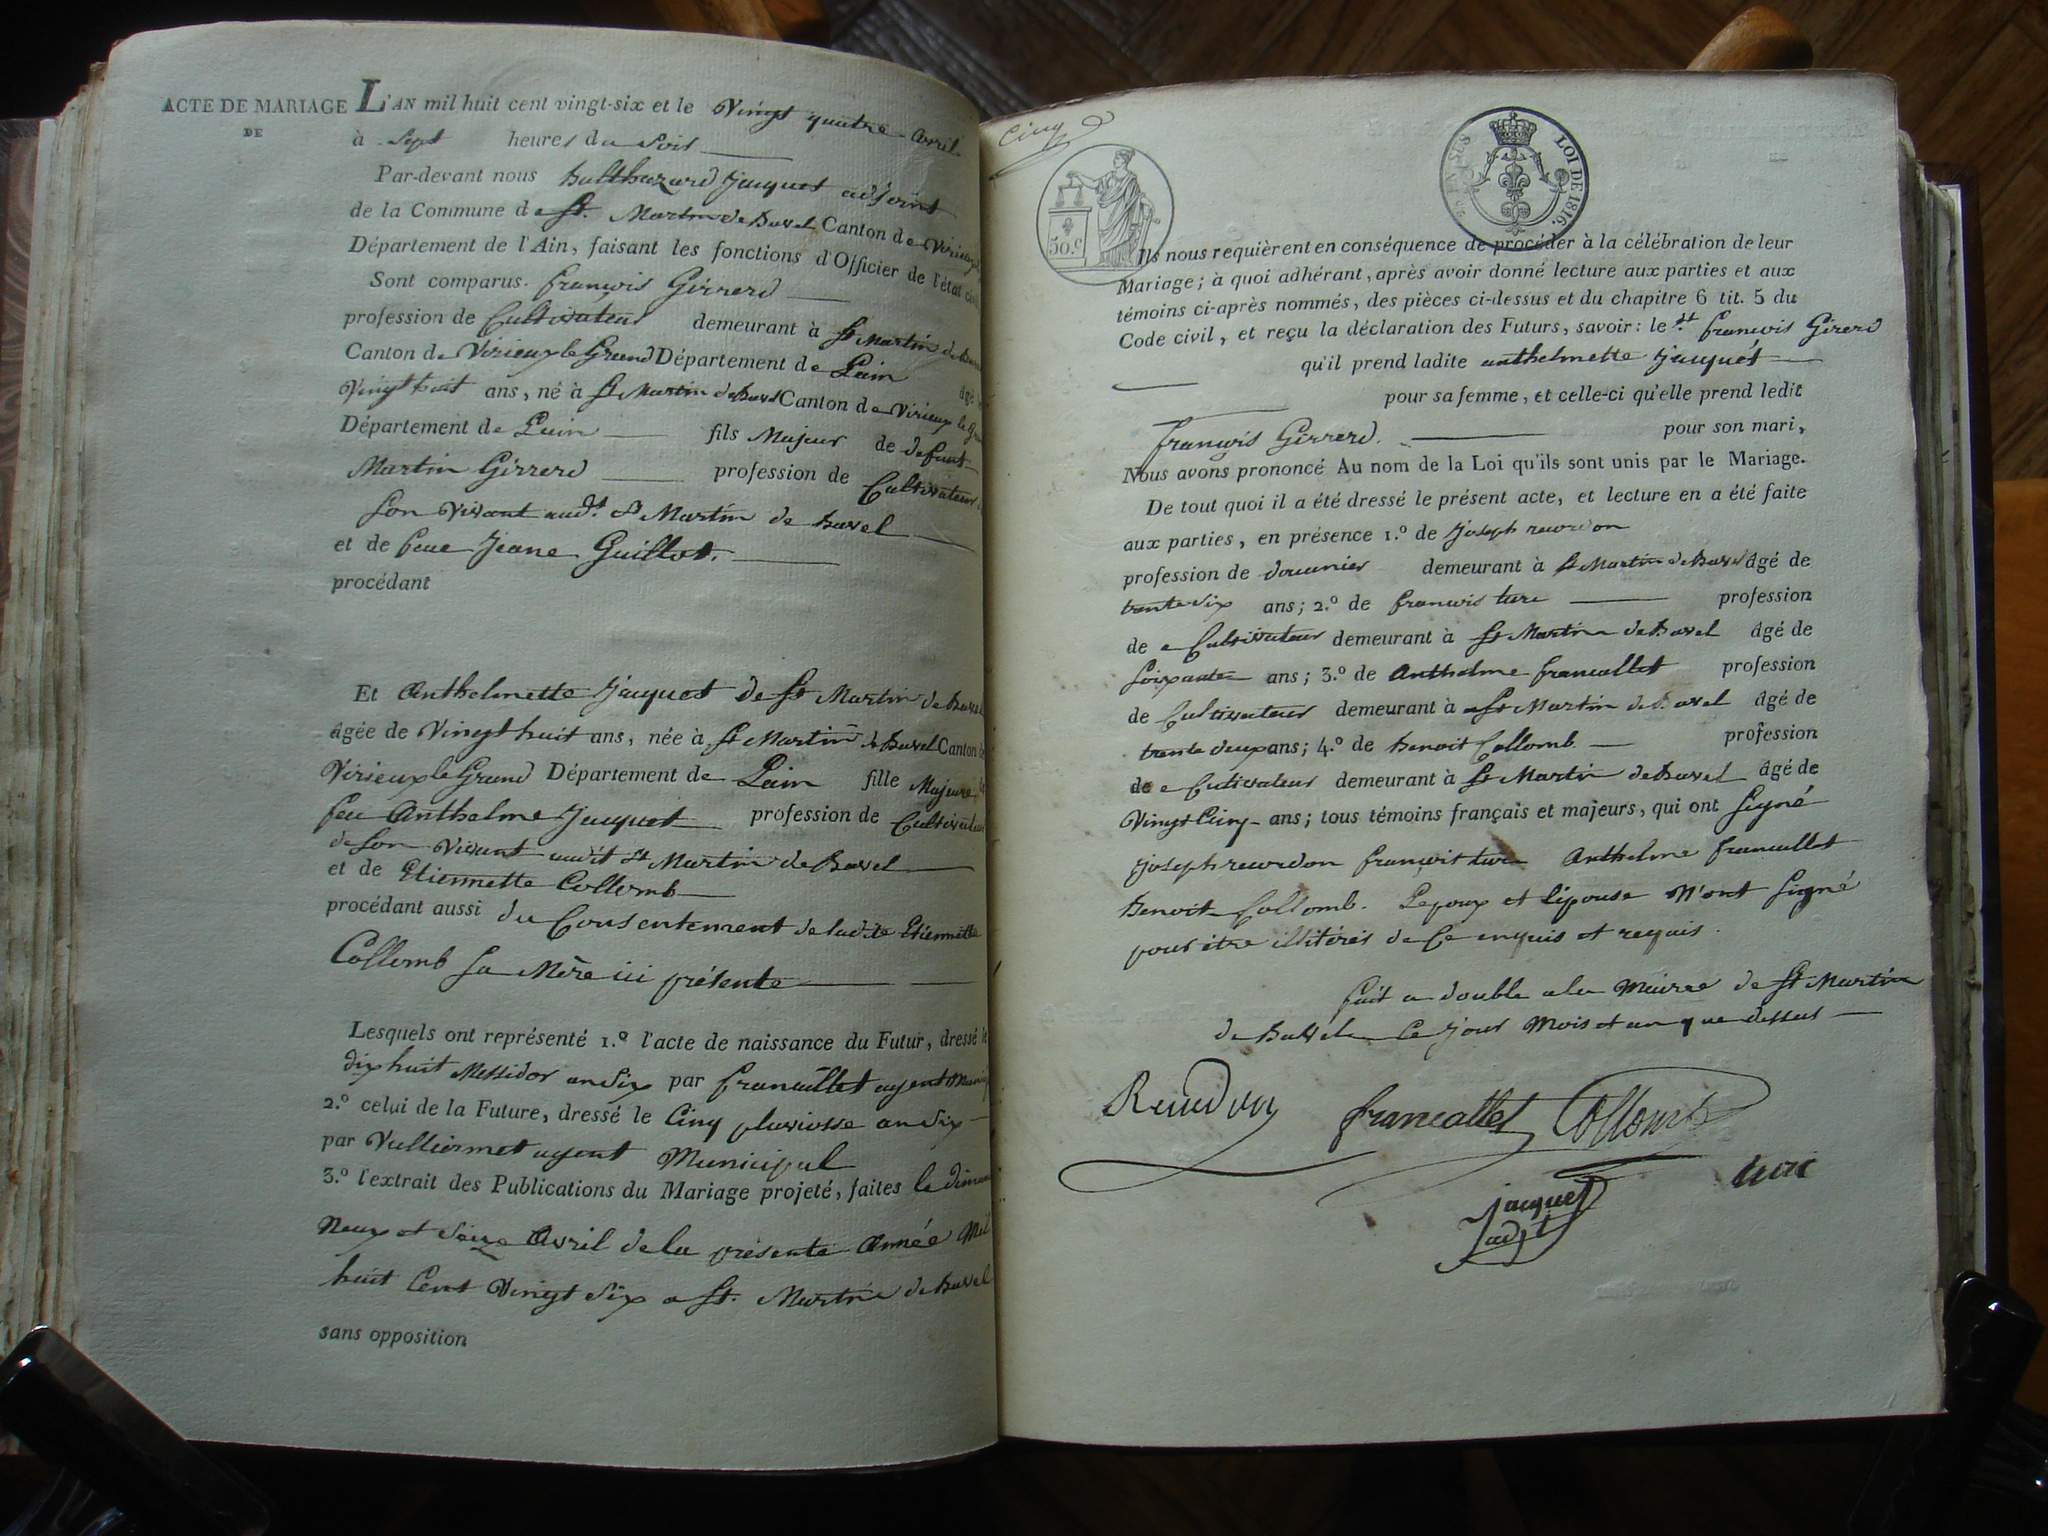 ACTE DE MARIAGE
DE
L'AN mil huit cent vingt-six et le Vingt quatre avril
à Sept heures du Soir
Par-devant nous balthazard jacquet adjoint
de la Commune de St. Martin de Bavel Canton de Virieux
Département de l'Ain, faisant les fonctions d'Officier de l'état civil
Sont comparus françois Girrerd
profession de Cultivateur demeurant à St Martin de Bavel
Canton de Virieux le Grand Département de Lain âgé
Vingt huit ans, né à St Martin de Bavel Canton de Virieux le Gran
Département de Lain fils Majeur de defunt
Martin Girrerd profession de Cultivateur
Son vivant aud.t St Martin de bavel
et de feue Jeane Guillot.
procédant
Et Anthelmette jacquet de St Martin de Bavel
âgée de Vingt huit ans, née à St Martin de Bavel Canton de
Virieux le Grand Département de Lain fille Majeure de
feu Anthelme jacquet profession de Cultivateur
de Son Vivant audit St Martin de Bavel
et de Etiennette Collomb
procédant aussi du Consentement de ladite Etiennette
Collomb Sa Mère ici présente
Lesquels ont représenté 1.º l'acte de naissance du Futur, dressé le
dix huit Messidor an Six par francillet agent Munici
2.º celui de la Future, dressé le Cinq pluviosse an Six
par Vulliermet agent Municipal
3.º l'extrait des Publications du Mariage projeté, faites le diman
Neuf et Seize Avril de la présente Année Mil
huit Cent Vingt Six a St. Martin de Bavel
sans opposition
Cinq
50.c
EN SUS
LOI DE 1816.
Ils nous requièrent en conséquence de procéder à la célébration de leur
Mariage; à quoi adhérant, après avoir donné lecture aux parties et aux
témoins ci-après nommés, des pièces ci-dessus et du chapitre 6 tit. 5 du
Code civil, et reçu la déclaration des Futurs, savoir: le d.t françois Girerd
qu'il prend ladite anthelmette jacquet
pour sa femme, et celle-ci qu'elle prend ledit
françois Girrerd. pour son mari,
Nous avons prononcé Au nom de la Loi qu'ils sont unis par le Mariage.
De tout quoi il a été dressé le présent acte, et lecture en a été faite
aux parties, en présence 1.º de Joseph reverdon
profession de douanier demeurant à St Martin de Bavel âgé de
trente Six ans; 2.º de francois turc profession
de Cultivateur demeurant à St Martin de Bavel âgé de
Soixante ans; 3.º de Anthelme francallet profession
de Cultivateur demeurant à St Martin de Bavel âgé de
trente deux ans; 4.º de Benoit Collomb profession
de Cutivateur demeurant à St Martin de Bavel âgé de
Vingt Cinq ans; tous témoins français et majeurs, qui ont Signé
Joseph reverdon françois turc Anthelme francallet
Benoit Collomb. Lepoux et Lépouse N'ont Signé
pour être illitérés de Ce enquis et requis.
fait a double a la Mairie de St Martin
de Bavel Le jour Mois et an que dessus
Francallet Collomb
turc
jacquet
adjt